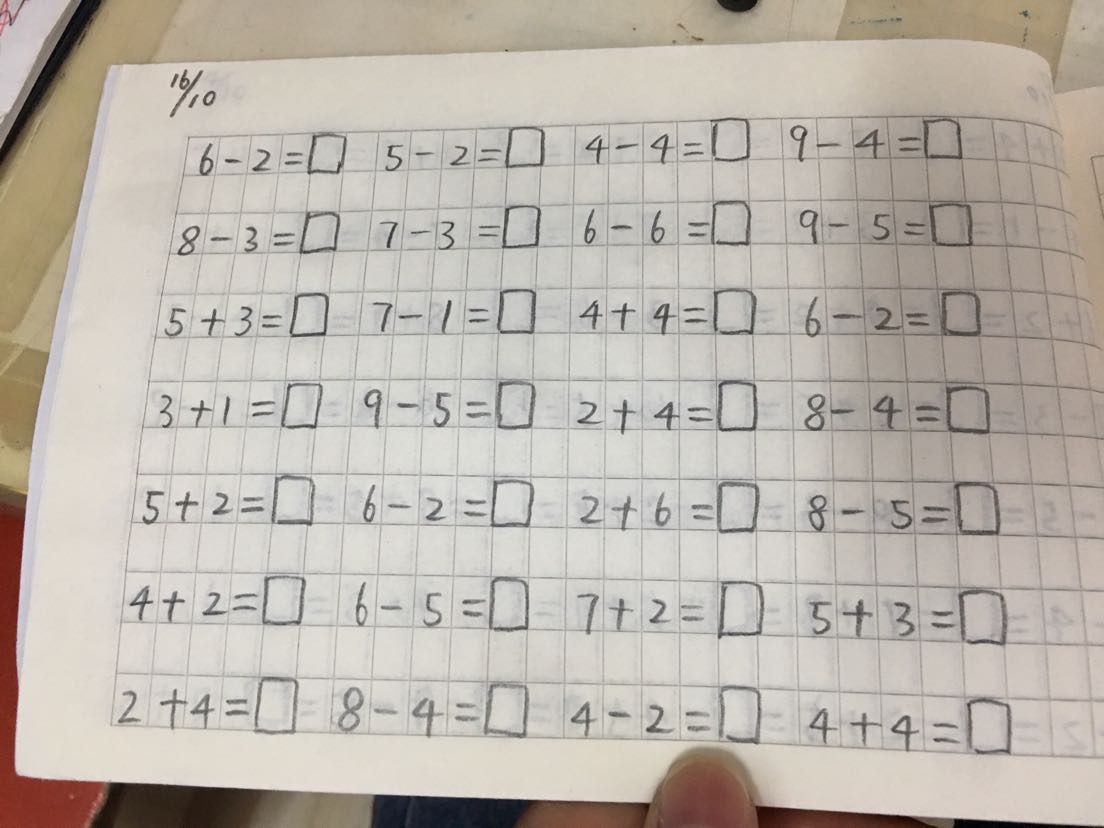 16/10
6-2=□ 5-2=□ 4-4=□ 9-4=□
8-3=□ 7-3=□ 6-6=□ 9-5=□
5+3=□ 7-1=□ 4+4=□ 6-2=□
3+1=□ 9-5=□ 2+4=□ 8-4=□
5+2=□ 6-2=□ 2+6=□ 8-5=□
4+2=□ 6-5=□ 7+2=□ 5+3=□
2+4=□ 8-4=□ 4-2=□ 4+4=□